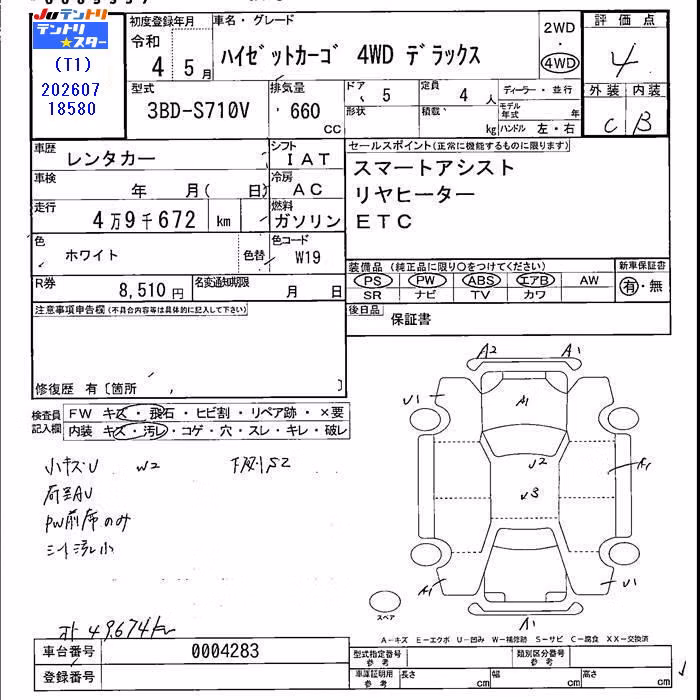 JUテントリ
テントリ
★スター
(T1)
202607
18580
初度登録年月
令和
4 5月
車名・グレード
ハイゼットカーゴ 4WD デラックス
2WD
・
4WD
評価点
4
外装 内装
C B
型式
3BD-S710V
排気量
660
CC
ドア
5
形状
定員
4 人
積載
kg
ディーラー・並行
モデル年式 年
ハンドル 左・右
車歴
レンタカー
シフト
IAT
車検
年 月( 日)
冷房
AC
走行
4万9千672 km
燃料
ガソリン
色
ホワイト
色替
色コード
W19
R券
8,510円
名変通知期限
月 日
セールスポイント(正常に機能するものに限ります)
スマートアシスト
リヤヒーター
ETC
装備品 (純正品に限り○をつけてください)
PS PW ABS エアB AW
SR ナビ TV カワ
新車保証書
有・無
後日品
保証書
注意事項申告欄(不具合内容等は具体的に記入して下さい)
修復歴 有〔箇所 , 〕
検査員
記入欄
FW キズ・飛石・ヒビ割・リペア跡・×要
内装 キズ・汚レ・コゲ・穴・スレ・キレ・破レ
小キズU W2 下廻りS2
荷室AU
PW前席のみ
シート汚レ小
オド 49,674km
A2 A1
U1
A1
U2
U3
A1
A1
U1
A1
スペア
A−キズ E−エクボ U−凹み W−補修跡 S−サビ C−腐食 XX−交換済
車台番号
0004283
登録番号
型式指定番号
参考
類別区分番号
参考
車庫証明用
参考
長さ cm
幅 cm
高さ cm